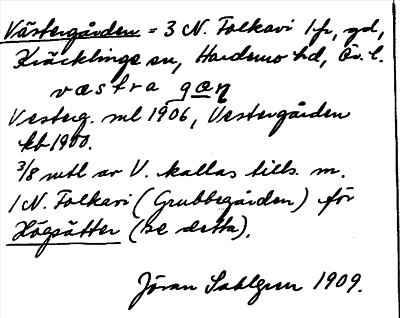 Västergården = 3 N. Folkavi 1 fr, gd,
Kräcklinge sn, Hardemo hd, Ör. l.
væstra gɑŋ
Vesterg. ml 1906, Vestergården
kb 1900.
3/8 mtl av V. kallas tills. m.
1 N. Folkavi (Grubbegården) för
Högsätter (se detta).
Jöran Sahlgren 1909.